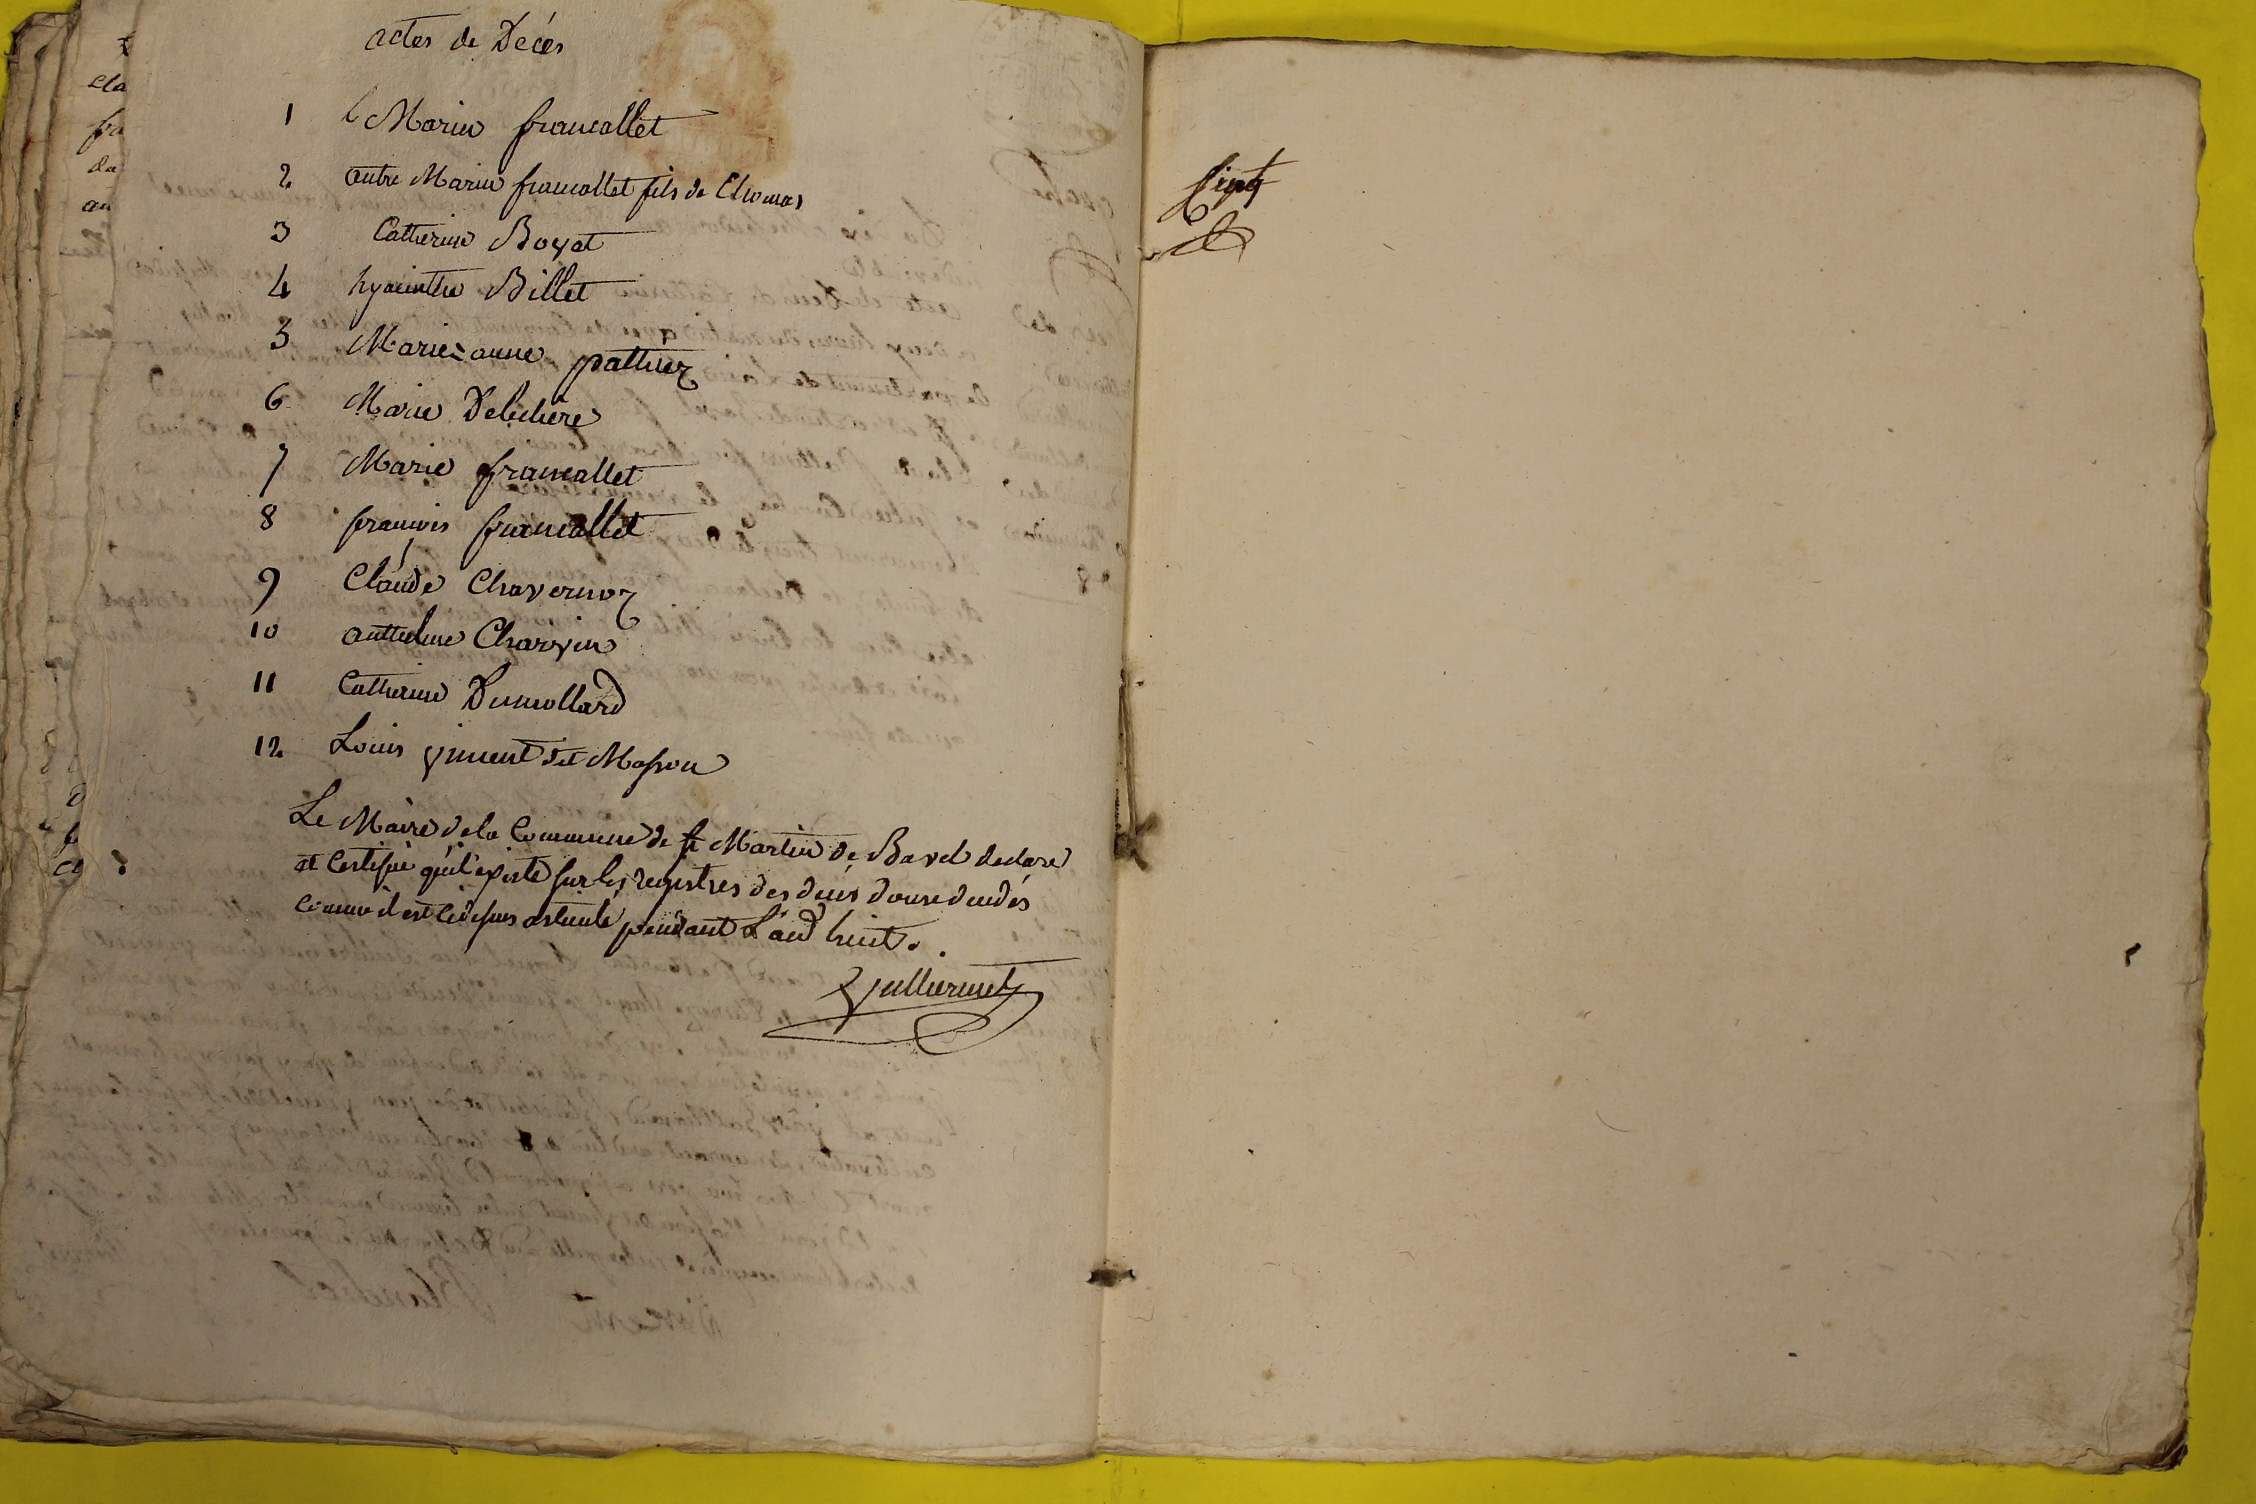 actes de Décés
1 Marin francallet
2 autre Marin francallet fils de Thomas
3 Catterine Boyat
4 hyacinthe Billet
5 Marie=anne pathuez
6 Marie Delechere
7 Marie francallet
8 francois francallet
9 Claude Chavernoz
10 anthelme Charvin
11 Catherine Dumollard
12 Louis vincent dit Masson
Le Maire de la Commune de st Martin de Bavel declare
et Certifie qu'il existe sur les registres des deces douze decedés
comme il est cidessus articulé pendant L'an huit.
Vulliermet
Cinq